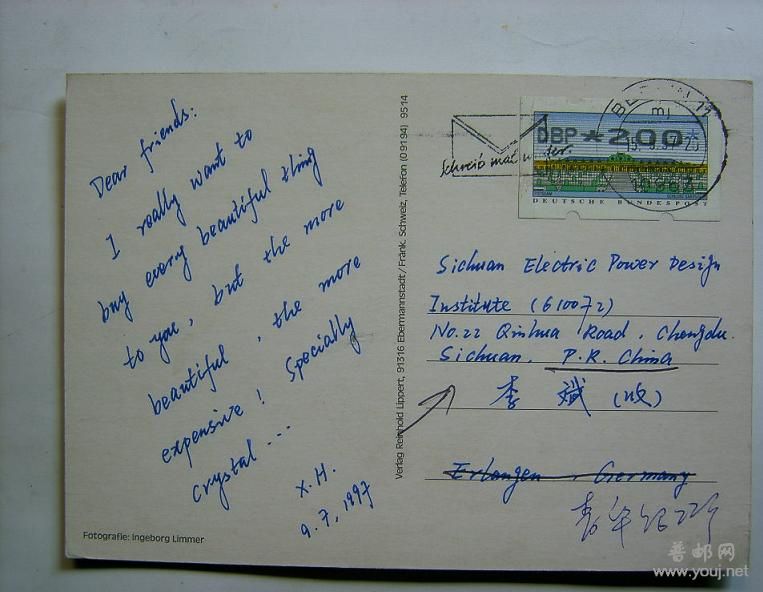 Dear friends:
I really want to
buy every beautiful thing
to you, but the more
beautiful, the more
expensive! Specially
crystal ...
X.H.
9.7,1997
Fotografie: Ingeborg Limmer
Verlag Reinhold Lippert, 91316 Ebermannstadt/Fränk. Schweiz, Telefon (09194) 9514
Schreib mal wieder.
DBP *200*
DEUTSCHE BUNDESPOST
Sichuan Electric Power Design
Institute (610072)
No.22 Qinhua Road, Chengdu.
Sichuan, P.R. China
李 斌 (收)
Erlangen, Germany
青华路22号
普邮网
www.youj.net